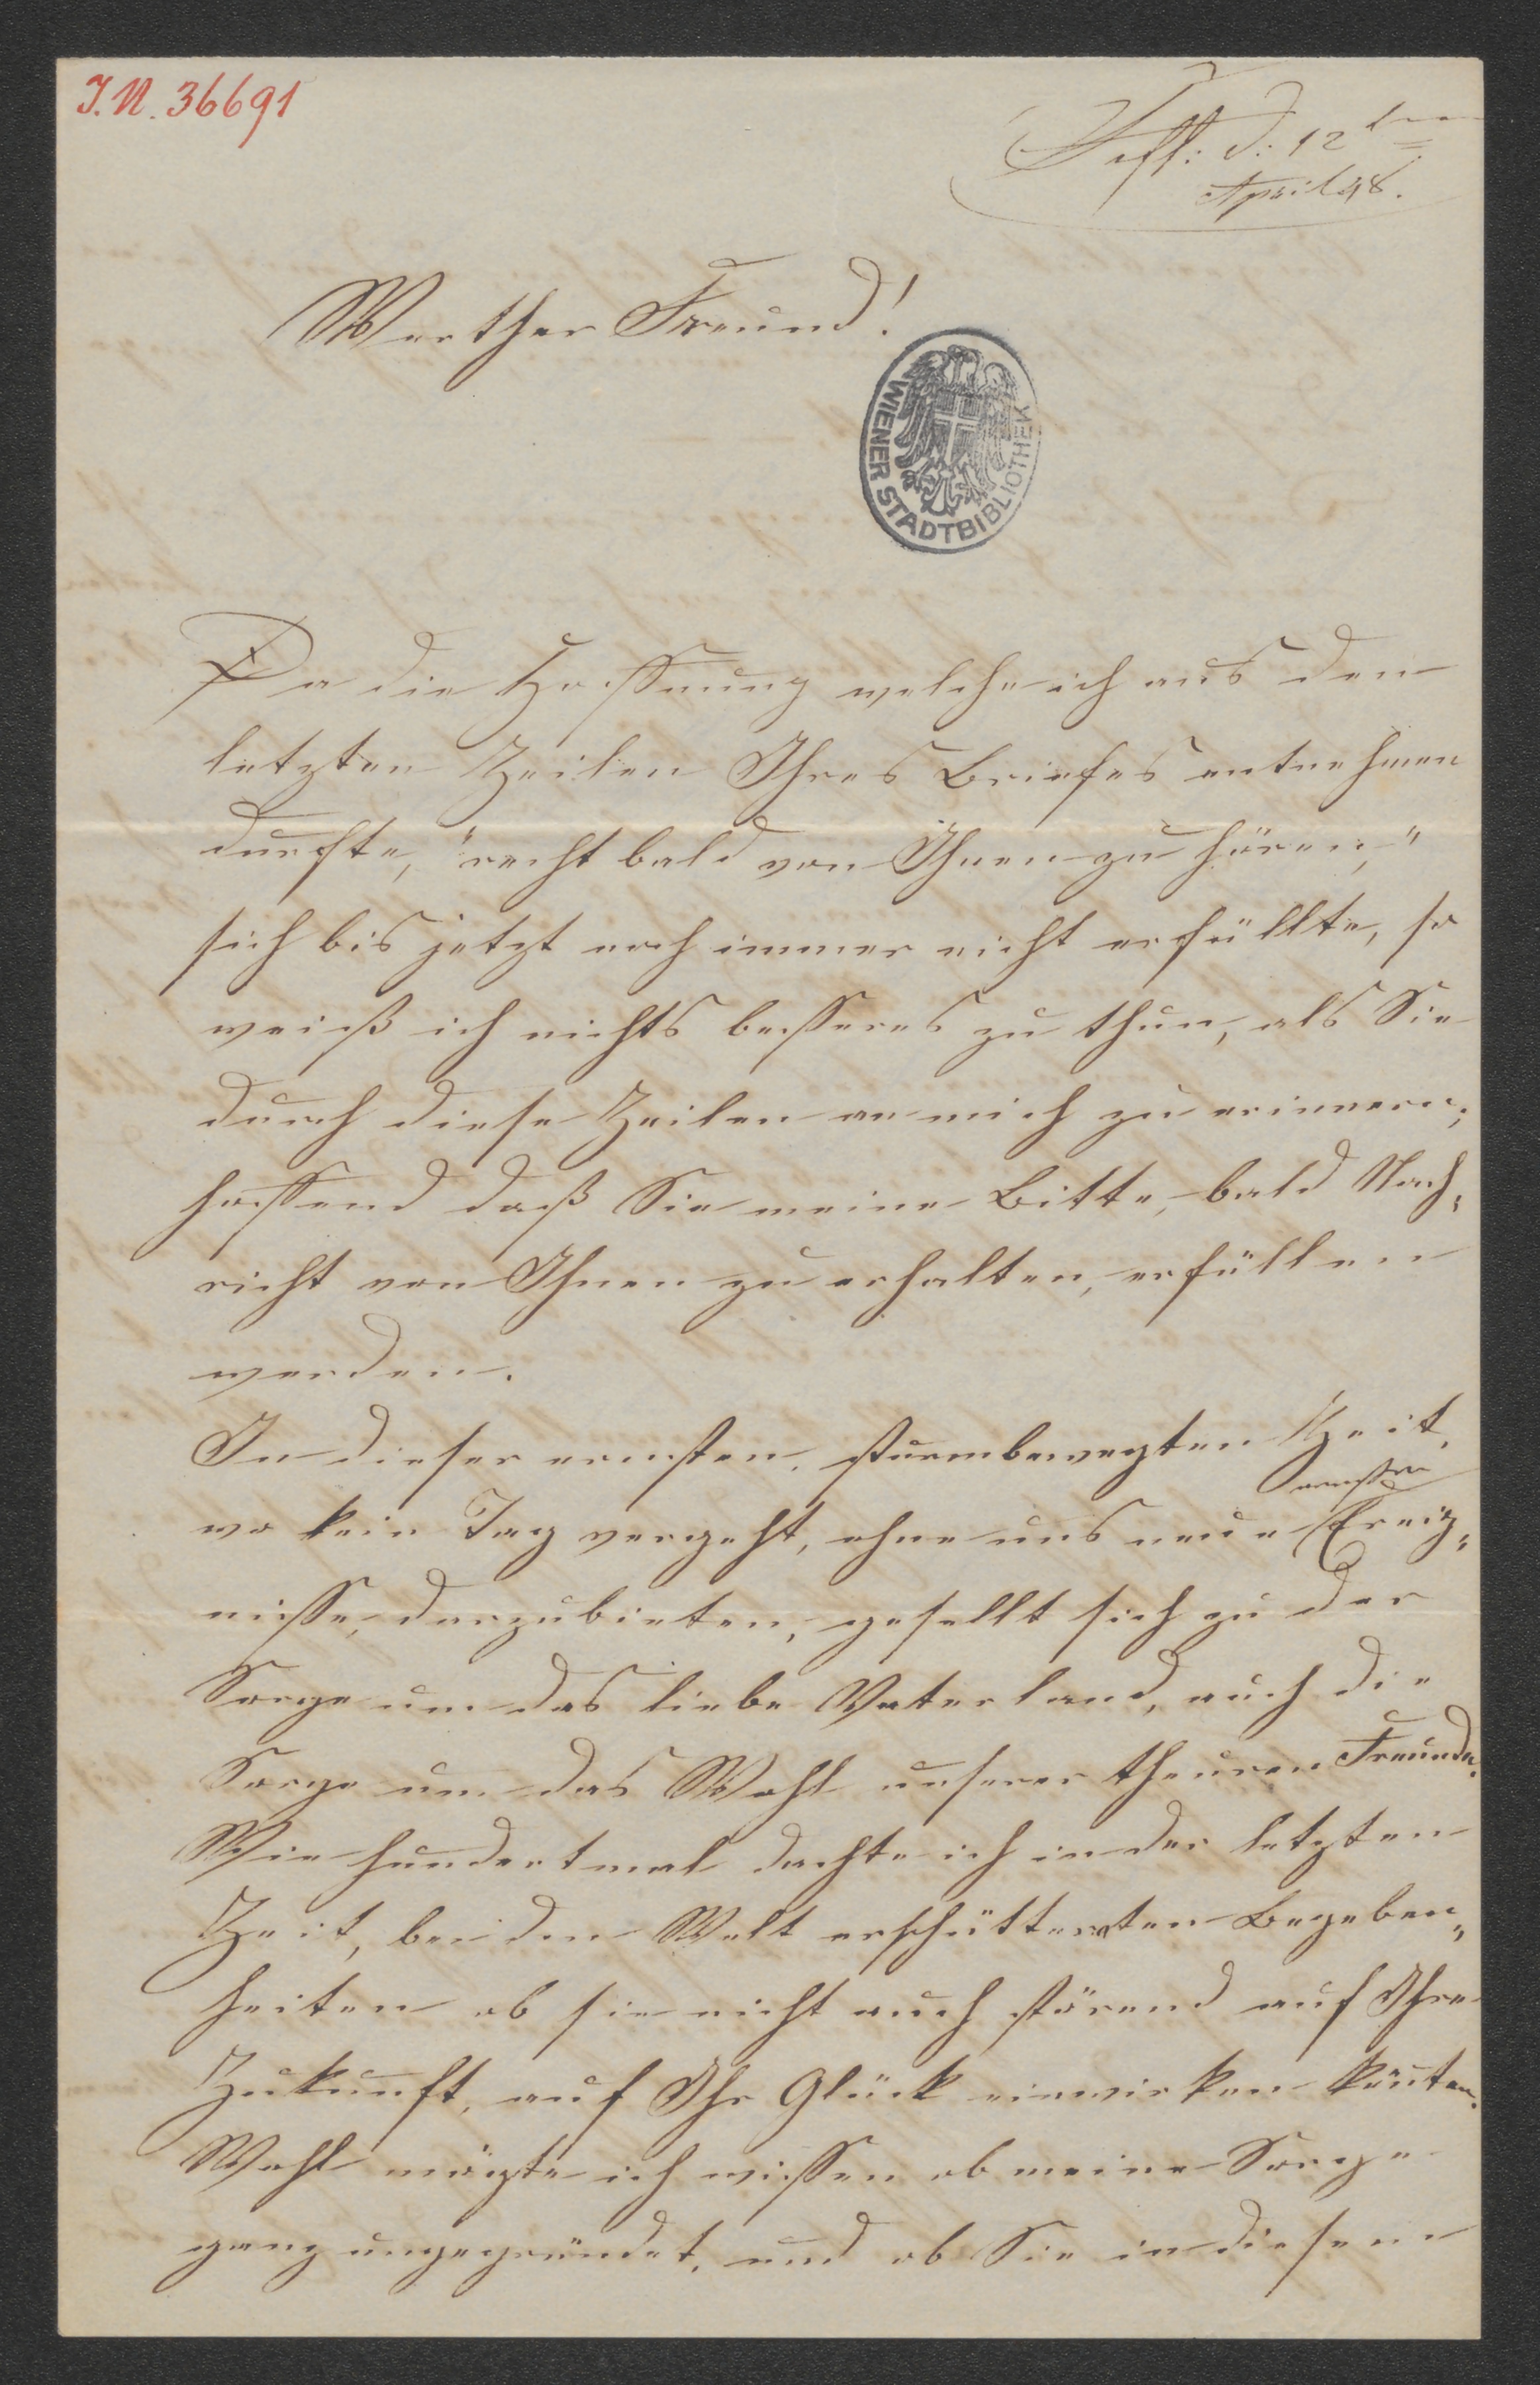 J.N. 36691
Pesth: d: 12ten
April 48.
Werther Freund!
WIENER STADTBIBLIOTHEK
Da die Hoffnung welche ich aus den
letzten Zeilen Ihres Briefes entnehmen
durfte, "recht bald von Ihnen zu hören,"
sich bis jetzt noch immer nicht erfüllte, so
weiß ich nichts besseres zu thun, als Sie
durch diese Zeilen an mich zu erinnern;
hoffend daß Sie meine Bitte, bald Nach,
richt von Ihnen zu erhalten, erfüllen
werden.
In dieser ernsten, sturmbewegten Zeit,
wo kein Tag vergeht, ohne uns neue ernste Ereig,
nisse, darzubieten, gesellt sich zu der
Sorge um das liebe Vaterland, auch die
Sorge um das Wohl unserer theuren Freunde.
Wie hundertmal dachte ich in der letzten
Zeit, bei den Welt erschütternten Begeben,
heiten ob sie nicht auch störend auf Ihre
Zukunft, auf Ihr Glück einwirken könten.
Wohl mögte ich wissen ob meine Sorge
ganz ungegründet, und ob Sie in diesem